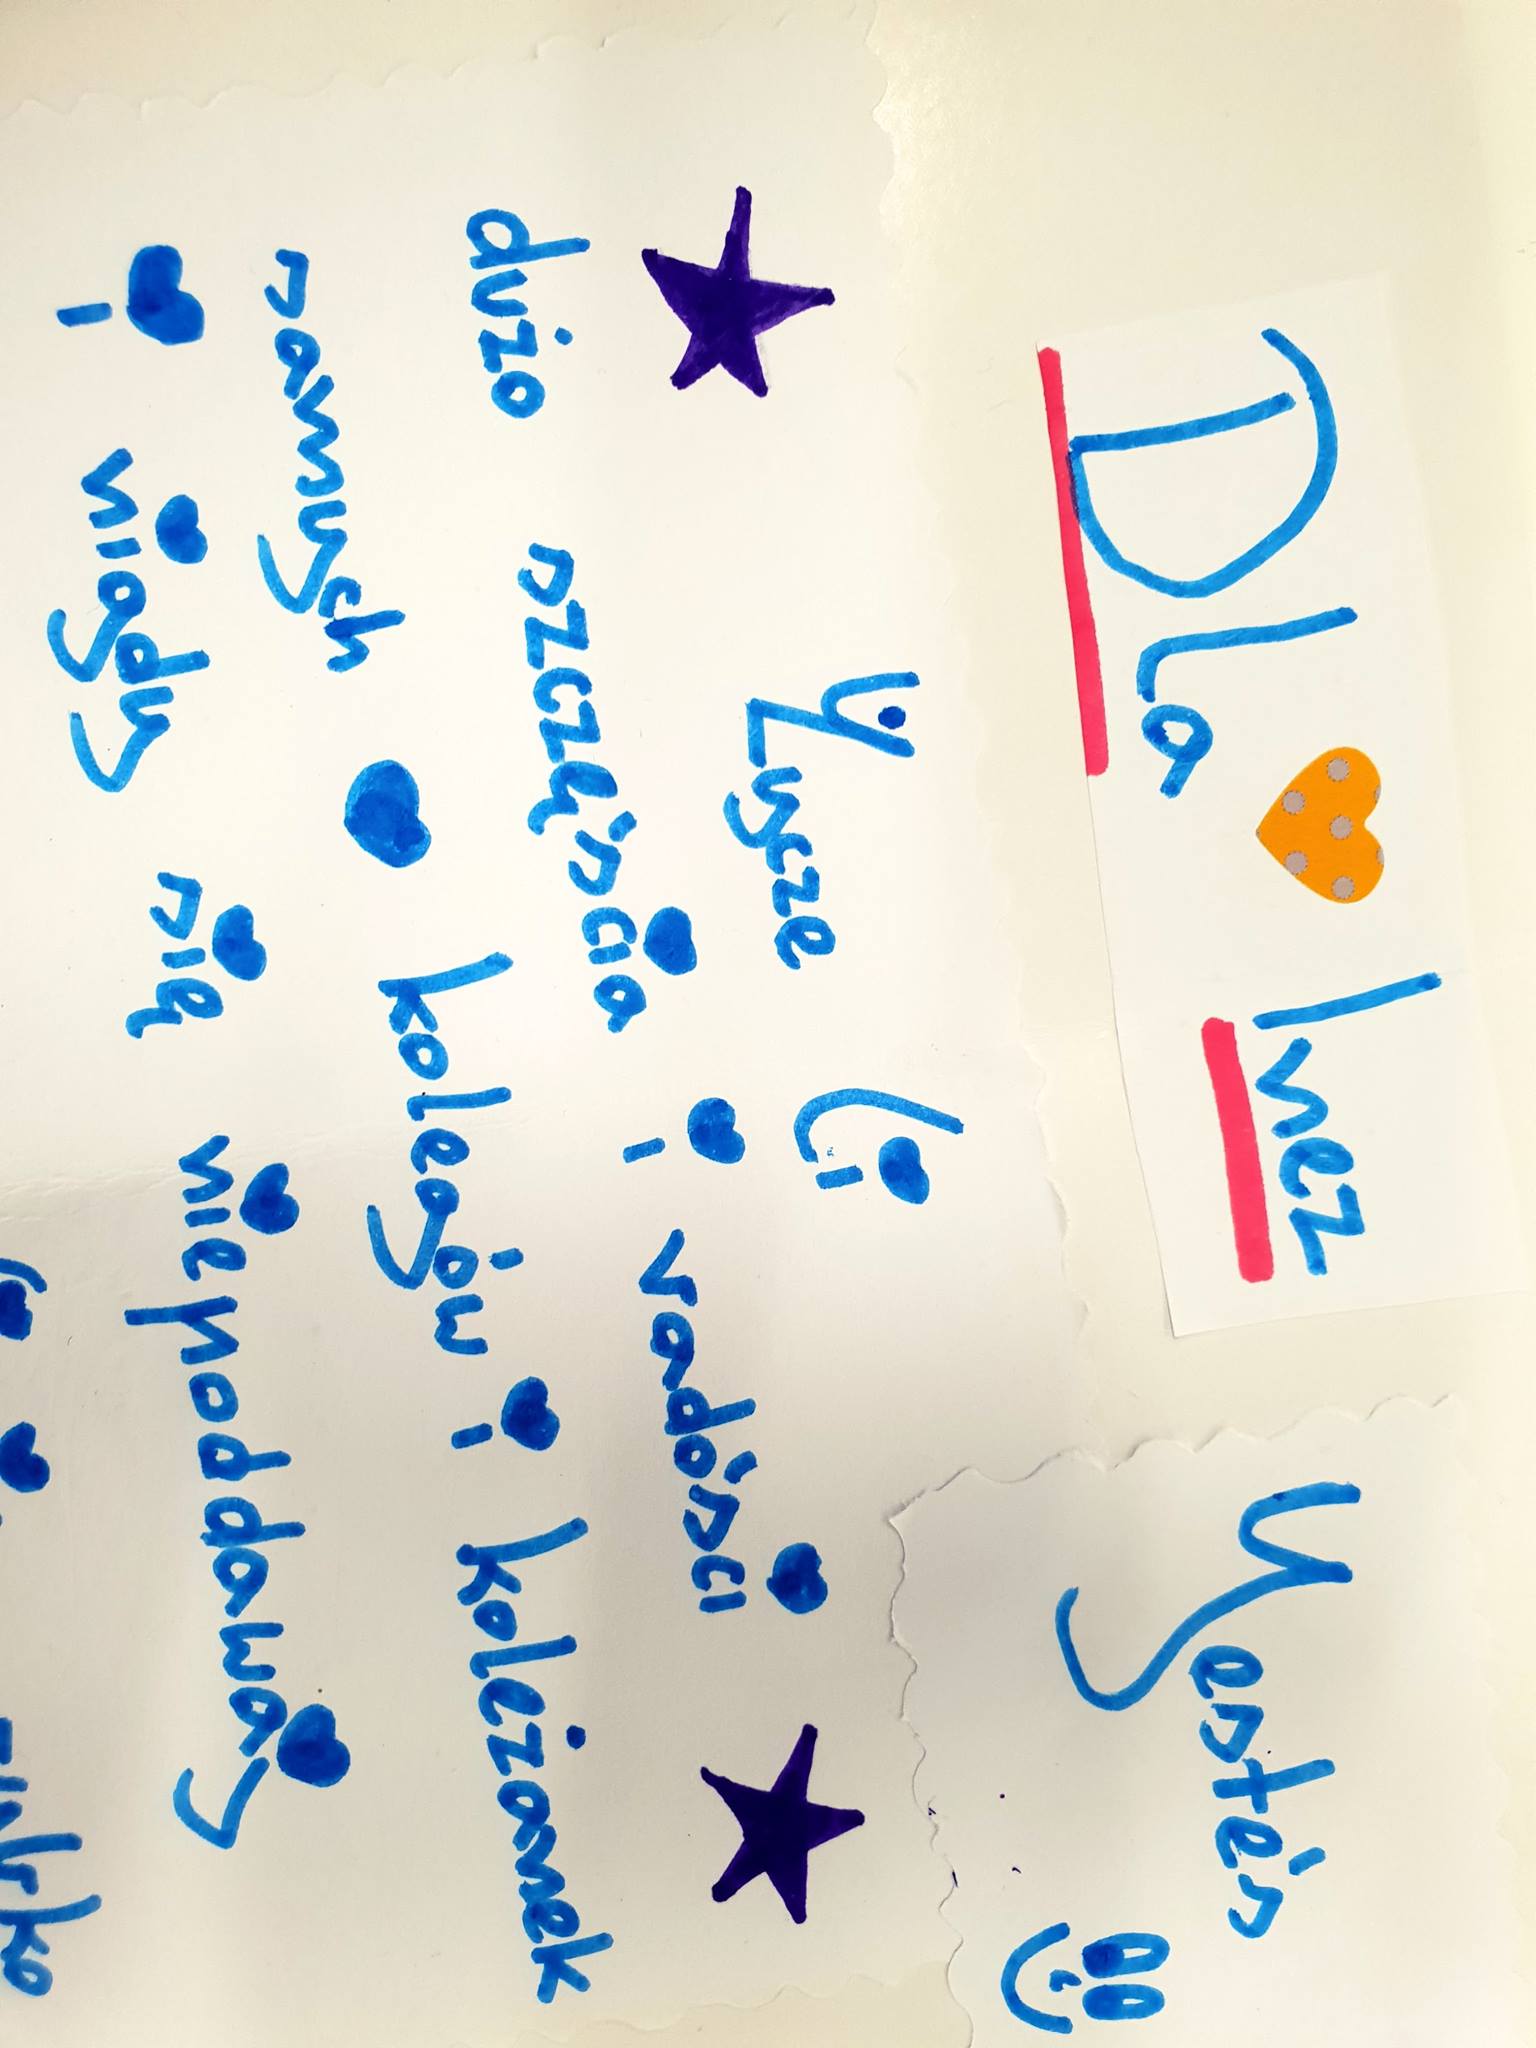 Dla Inez
Yesteś
Życze Ci
dużo szczęścia i radości
samych kolegów i koleżanek
i nigdy się nie poddawaj